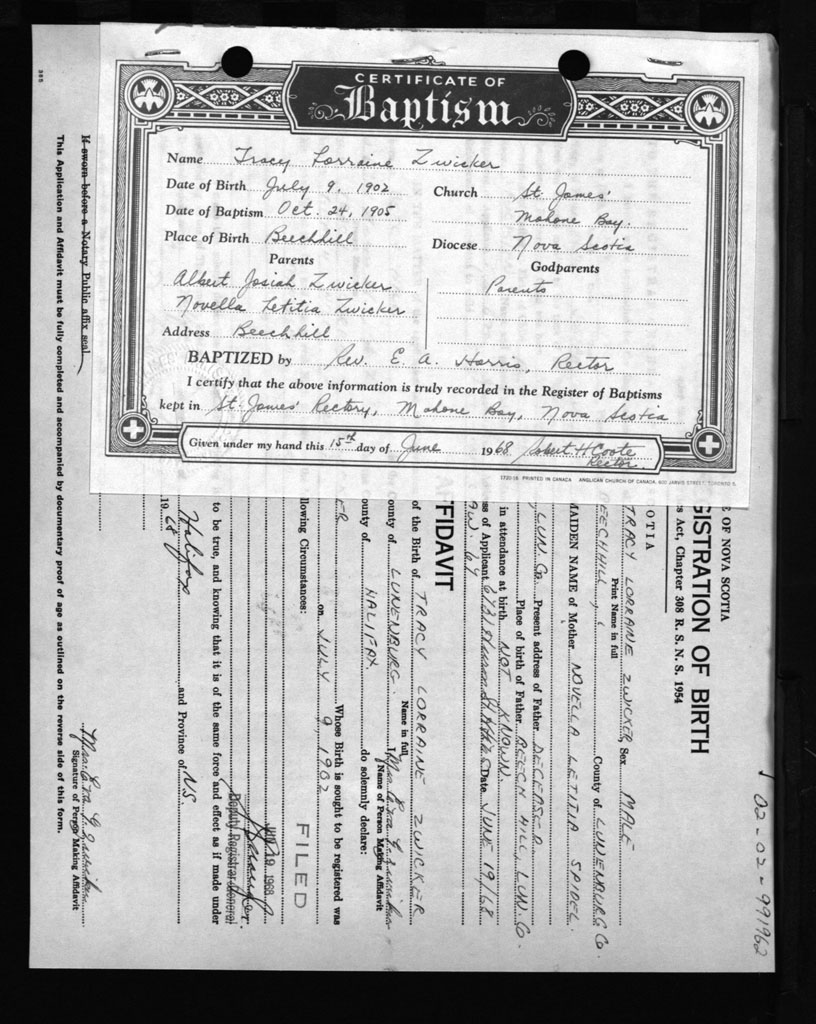 CERTIFICATE OF
Baptism
Name Tracy Lorraine Zwicker
Date of Birth July 9, 1902
Church St. James'
Date of Baptism Oct. 24, 1905
Mahone Bay.
Place of Birth Beechhill
Diocese Nova Scotia
Parents
Godparents
Albert Josiah Zwicker
Parents
Novella Letitia Zwicker
Address Beechhill
BAPTIZED by Rev. E. A. Harris, Rector
I certify that the above information is truly recorded in the Register of Baptisms
kept in St. James' Rectory, Mahone Bay, Nova Scotia
Given under my hand this 15th day of June 1968 Robert H. Coote
Rector
172018 PRINTED IN CANADA ANGLICAN CHURCH OF CANADA, 600 JARVIS STREET, TORONTO 5,
02-02-991962
E OF NOVA SCOTIA
GISTRATION OF BIRTH
s Act, Chapter 308 R. S. N. S. 1954
OTIA
TRACY LORRAINE ZWICKER Sex MALE
Print Name in full
BEECHHILL, County of LUNENBURG Co.
MAIDEN NAME of Mother NOVELLA LETITIA SPIDEL
LUN. Co. Present address of Father DECEASED
Place of birth of Father BEECH HILL, LUN. Co.
in attendance at birth NOT KNOWN
ss of Applicant Date JUNE 19/68
FFIDAVIT
of the Birth of TRACY LORRAINE ZWICKER
Name in full
ounty of LUNENBURG. I, Mrs.
Name of Person Making Affidavit
ounty of HALIFAX do solemnly declare:
ER Whose Birth is sought to be registered was
on JULY 9, 1902
llowing Circumstances:
FILED
JUN 19 1968
Deputy Registrar General
to be true, and knowing that it is of the same force and effect as if made under
Halifax and Province of N.S.
1968
Mrs.
Signature of Person Making Affidavit
If sworn before a Notary Public affix seal
This Application and Affidavit must be fully completed and accompanied by documentary proof of age as outlined on the reverse side of this form.